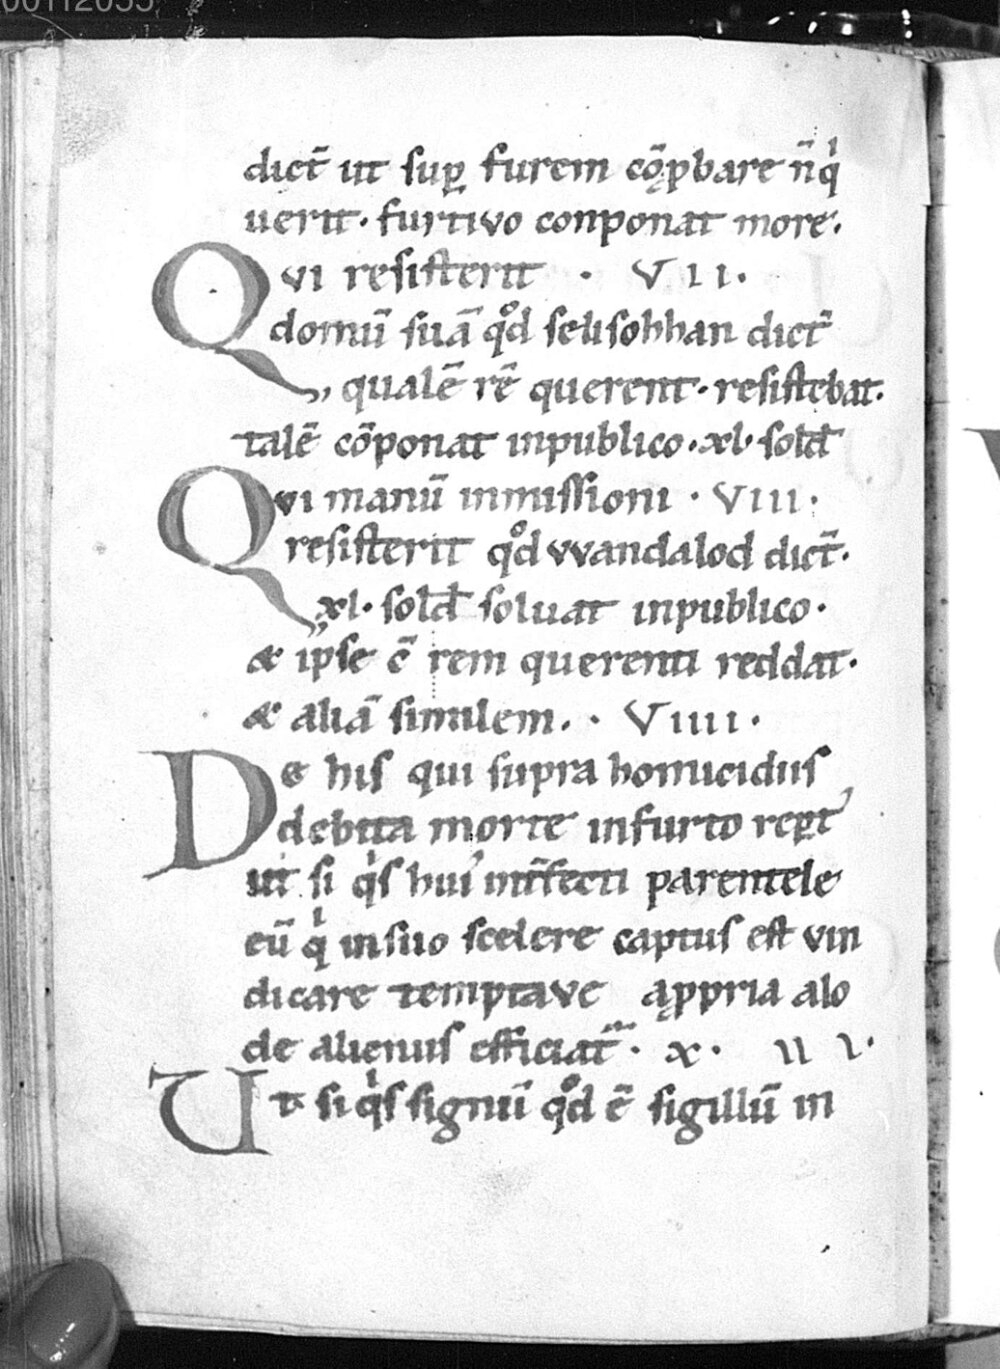 dict̄ ut suꝑ furem cōꝓbare n̄ qͥ
uerit· furtivo conponat more·
Qvi resisterit · VII·
domū suā qͦd selisohhan dict̄
qualē rē querent· resistebat·
talē cōponat inpublico· xl· sold̄
Qvi manū inmissioni · VIII·
resisterit qͦd vvandalod dict̄·
xl· sold̄ soluat inpublico·
& ipse ē rem querenti reddat·
& aliā similem· · VIIII·
De his qui supra homicidiis
debita morte infurto reꝑt᾽
ut si qͥs hui᾽ int̄fecti parentele
eū qͥ insuo scelere captus est vin
dicare temptave aꝓpria alo
de alienus efficiat᷑· x· II I·
Ut si qͥs signū qͦd ē sigillū in